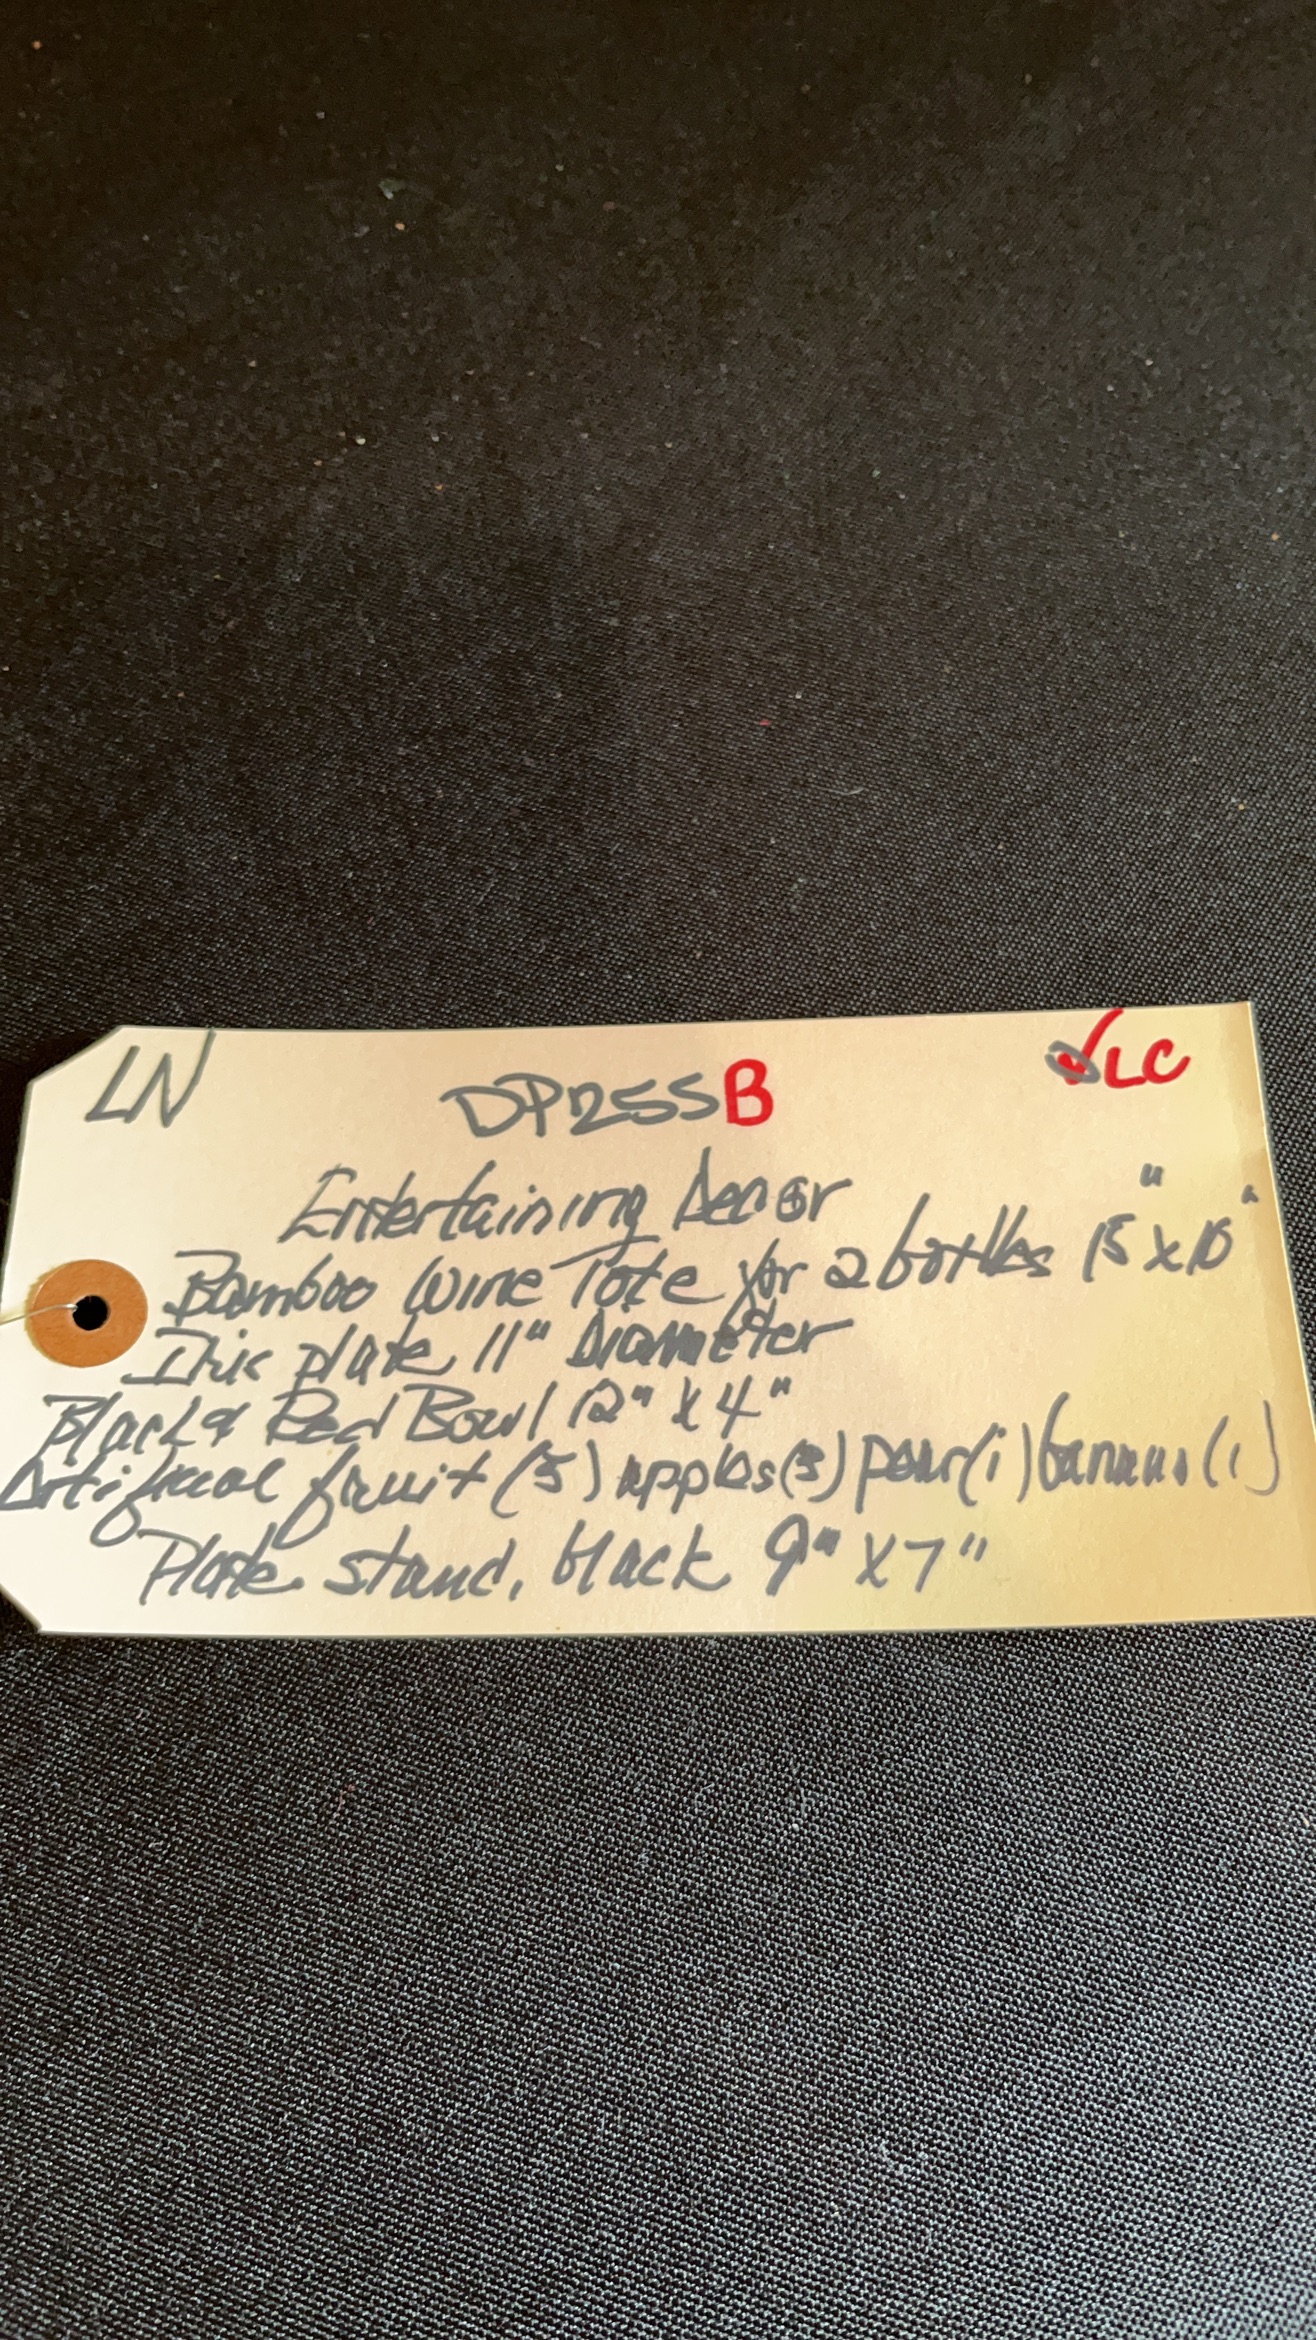 LN
DP255B
✓LC
Entertaining Decor
Bamboo Wine Tote for 2 bottles 15" x 10"
Iris plate 11" Diameter
Black & Red Bowl 12" x 4"
Artificial fruit (5) apples (3) pear (1) banana (1)
Plate stand, black 9" x 7"